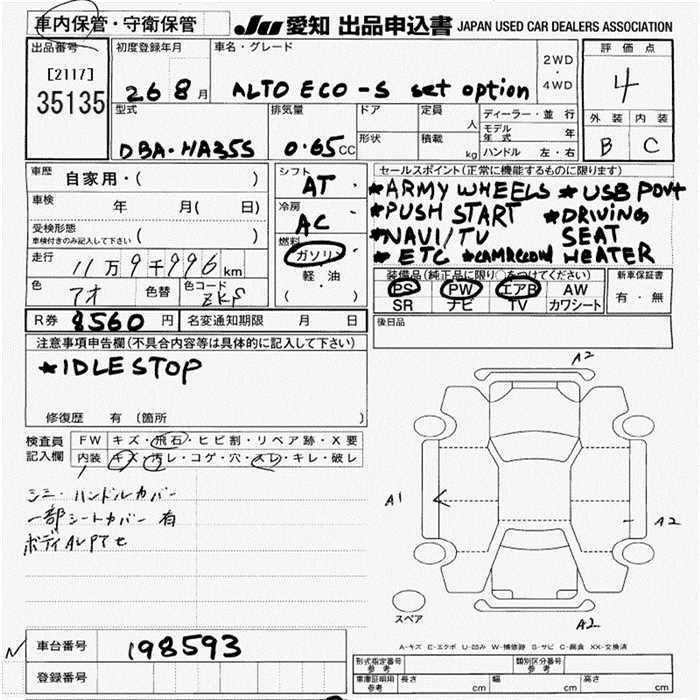 車内保管・守衛保管
JU 愛知 出品申込書 JAPAN USED CAR DEALERS ASSOCIATION
出品番号
[2117]
35135
初度登録年月
26 8月
車名・グレード
ALTO ECO-S set option
2WD
・
4WD
評価点
4
外装 内装
B C
型式
DBA・HA35S
排気量
0.65CC
ドア
形状
定員
人
積載
kg
ディーラー・並行
モデル年式 年
ハンドル 左・右
車歴
自家用・( )
車検 年 月( 日)
受検形態
車検付きのみ記入して下さい ( )
走行
11万9千996km
色
アオ
色替
色コード
シフト
AT
冷房
AC
燃料
ガソリン
軽・油
( )
セールスポイント(正常に機能するものに限ります)
*ARMY WHEELS *USB PORT
*PUSH START *DRIVING
*NAVI/TV SEAT
*ETC HEATER
装備品(純正品に限り○をつけてください)
PS PW エアB AW
SR ナビ TV カワシート
新車保証書
有・無
R券 8560円
名変通知期限 月 日
後日品
注意事項申告欄(不具合内容等は具体的に記入して下さい)
*IDLE STOP
修復歴 有 (箇所 )
検査員
記入欄
FW キズ・飛石・ヒビ割・リペア跡・X要
内装 キズ・汚レ・コゲ・穴・スレ・キレ・破レ
シミ・ハンドルカバー
一部シートカバー 有
A2
A1
A2
スペア
A2
A-キズ E-エクボ U-凹み W-補修跡 S-サビ C-腐食 XX-交換済
車台番号 198593
登録番号
型式指定番号
参考
類別区分番号
参考
車庫証明用
参考
長さ cm 幅 cm 高さ cm